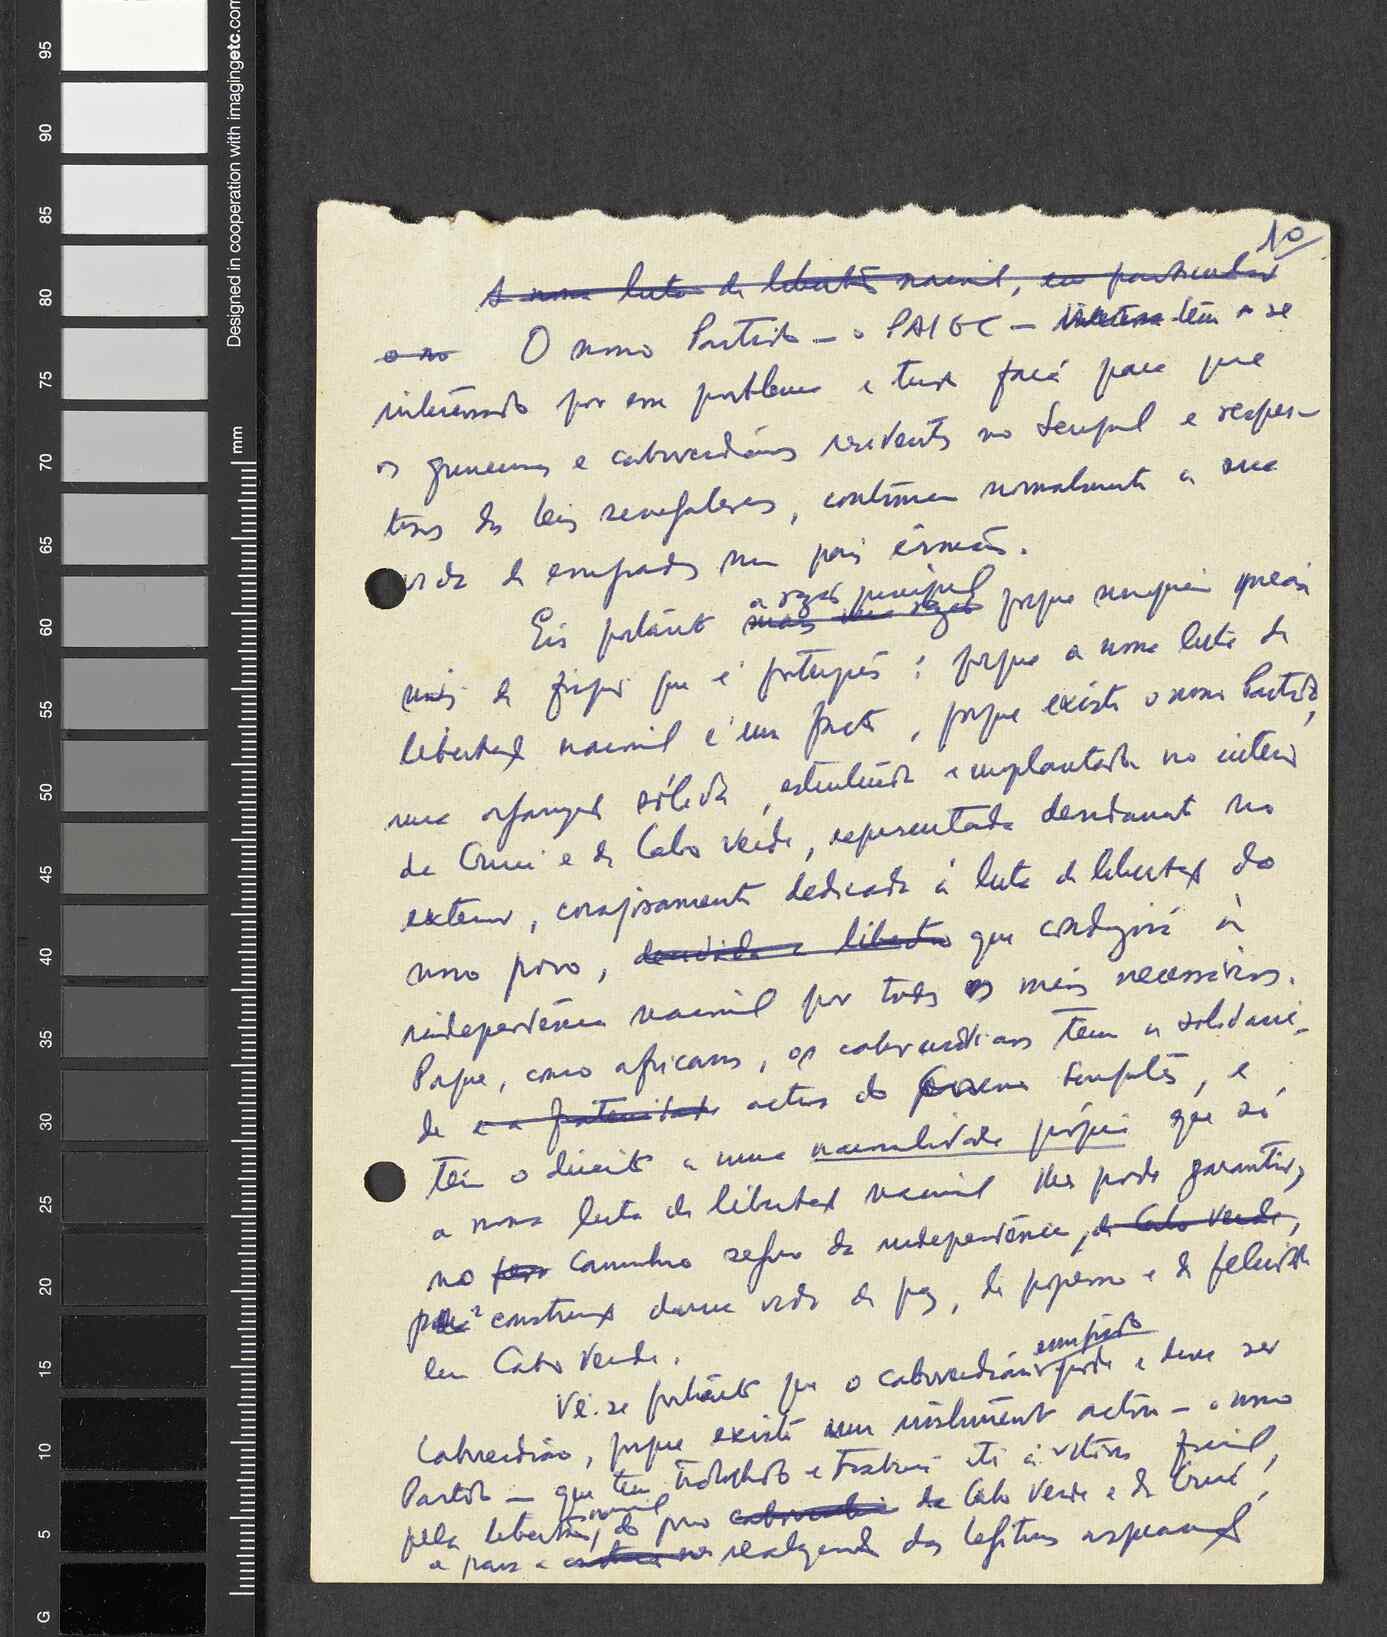 10
A nossa luta de libertação nacional, em particular
O nosso Partido — o PAIGC — tem-se
interessado por esse problema e tudo fará para que
os guineenses e caboverdianos residentes no Senegal e respei-
tosos das leis senegalesas, continuem normalmente a sua
vida de emigrados num país irmão.
Eis portanto a razão principal porque ninguém queira
mais dizer que é português: porque a nossa luta de
libertação nacional é um facto, porque existe o nosso Partido,
uma organização sólida, estruturada e implantada no interior
da Guiné e de Cabo Verde, representada no
exterior, corajosamente dedicada à luta de libertação do
nosso povo, que conduzirá à
independência nacional por todos os meios necessários.
Porque, como africanos, os caboverdianos têm a solidarie-
de e a fraternidade activa do Governo Senegalês, e
têm o direito a uma nacionalidade própria que só
a nossa luta de libertação nacional lhes pode garantir,
no caminho seguro da independência, de Cabo Verde,
para construção duma vida de paz, de progresso e de felicidade
em Cabo Verde.
Vê-se portanto que o caboverdiano emigrado pode e deve ser
Caboverdiano, porque existe um instrumento activo — o nosso
Partido — que tem trabalhado e trabalhará até à vitória final,
pela libertação nacional do povo de Cabo Verde e da Guiné,
e para a realização das legítimas aspirações
Designed in cooperation with imagingetc.com
mm
95
90
85
80
75
70
65
60
55
50
45
40
35
30
25
20
15
10
5
G